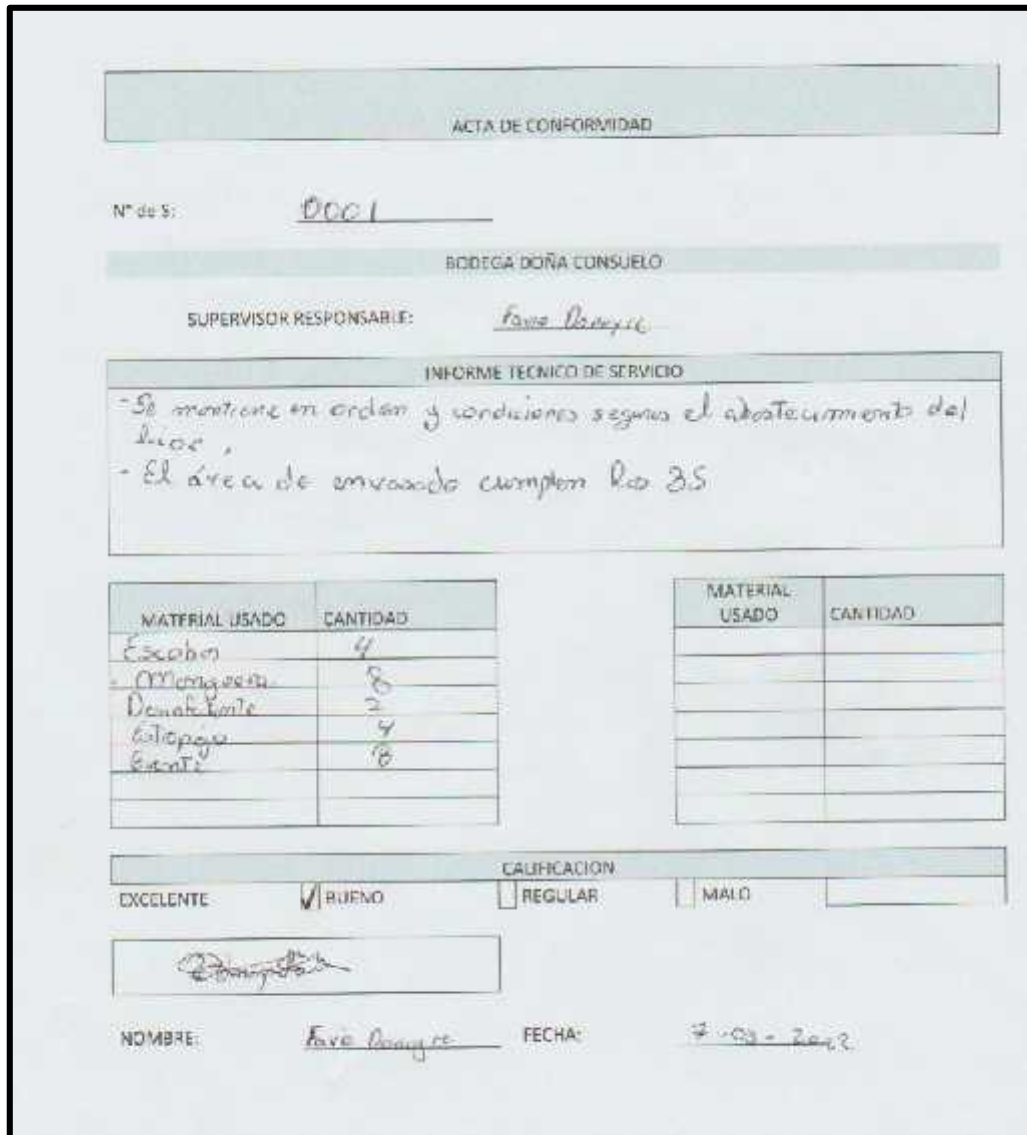 ACTA DE CONFORMIDAD
N° de S: 0001
BODEGA DOÑA CONSUELO
SUPERVISOR RESPONSABLE: Favio
INFORME TECNICO DE SERVICIO
- Se mantiene en orden y condiciones seguras el abastecimiento del
- El área de envasado cumplen las 3S
MATERIAL USADO CANTIDAD
Escobas 4
Manguera 8
2
4
8
MATERIAL
USADO CANTIDAD
CALIFICACION
EXCELENTE BUENO REGULAR MALO
NOMBRE: Favio FECHA: 7-03-2022